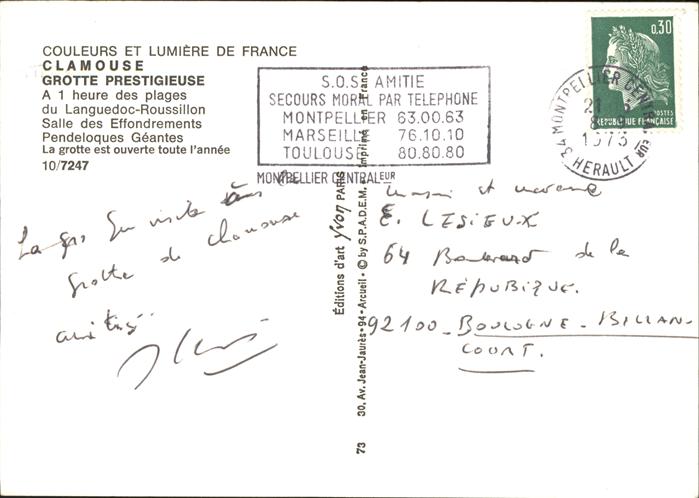 COULEURS ET LUMIÈRE DE FRANCE
CLAMOUSE
GROTTE PRESTIGIEUSE
A 1 heure des plages
du Languedoc-Roussillon
Salle des Effondrements
Pendeloques Géantes
La grotte est ouverte toute l'année
10/7247
S.O.S. AMITIE
SECOURS MORAL PAR TELEPHONE
MONTPELLIER 63.00.63
MARSEILLE 76.10.10
TOULOUSE 80.80.80
MONTPELLIER CENTRALEUR
0,30
POSTES
RÉPUBLIQUE FRANÇAISE
34 MONTPELLIER
21
1973
HERAULT
visite
grotte de clamouse
amitiés
Editions d'art YVON PARIS
© by S.P.A.D.E.M. Imprimé en France
30, Av. Jean-Jaurès • 94 - Arcueil •
73
et
E. LESIEUX
64 Boulevard de la
RÉPUBLIQUE.
92100 - BOULOGNE - BILLAN
COURT.